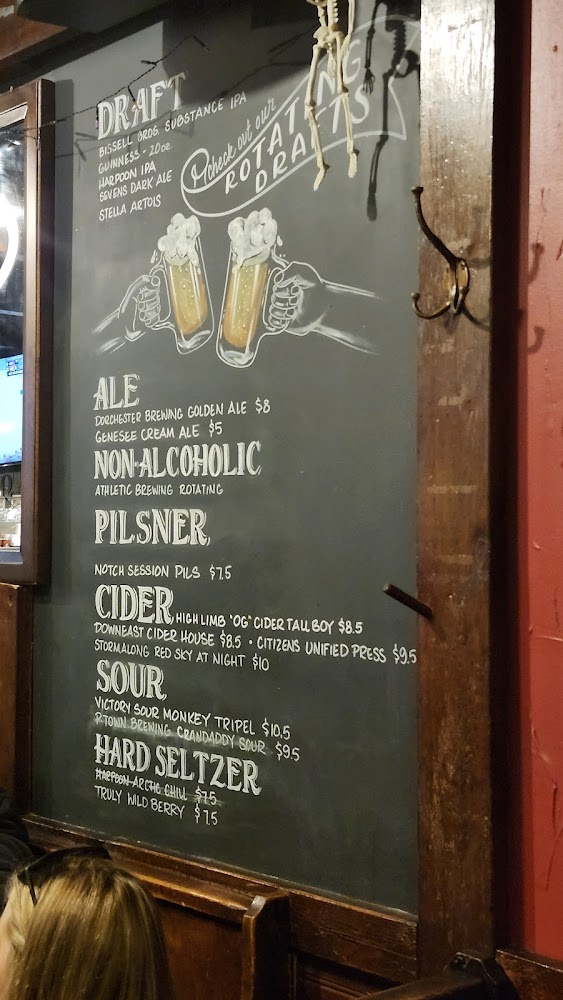 DRAFT
BISSELL BROS. SUBSTANCE IPA
GUINNESS - 20oz.
HARPOON IPA
SEVENS DARK ALE
STELLA ARTOIS
check out our
ROTATING
DRAFTS
ALE
DORCHESTER BREWING GOLDEN ALE $8
GENESEE CREAM ALE $5
NON-ALCOHOLIC
ATHLETIC BREWING ROTATING
PILSNER
NOTCH SESSION PILS $7.5
CIDER HIGH LIMB "OG" CIDER TALL BOY $8.5
DOWNEAST CIDER HOUSE $8.5 • CITIZENS UNIFIED PRESS $9.5
STORMALONG RED SKY AT NIGHT $10
SOUR
VICTORY SOUR MONKEY TRIPEL $10.5
P-TOWN BREWING CRANDADDY SOUR $9.5
HARD SELTZER
HARPOON ARCTIC CHILL $7.5
TRULY WILD BERRY $7.5